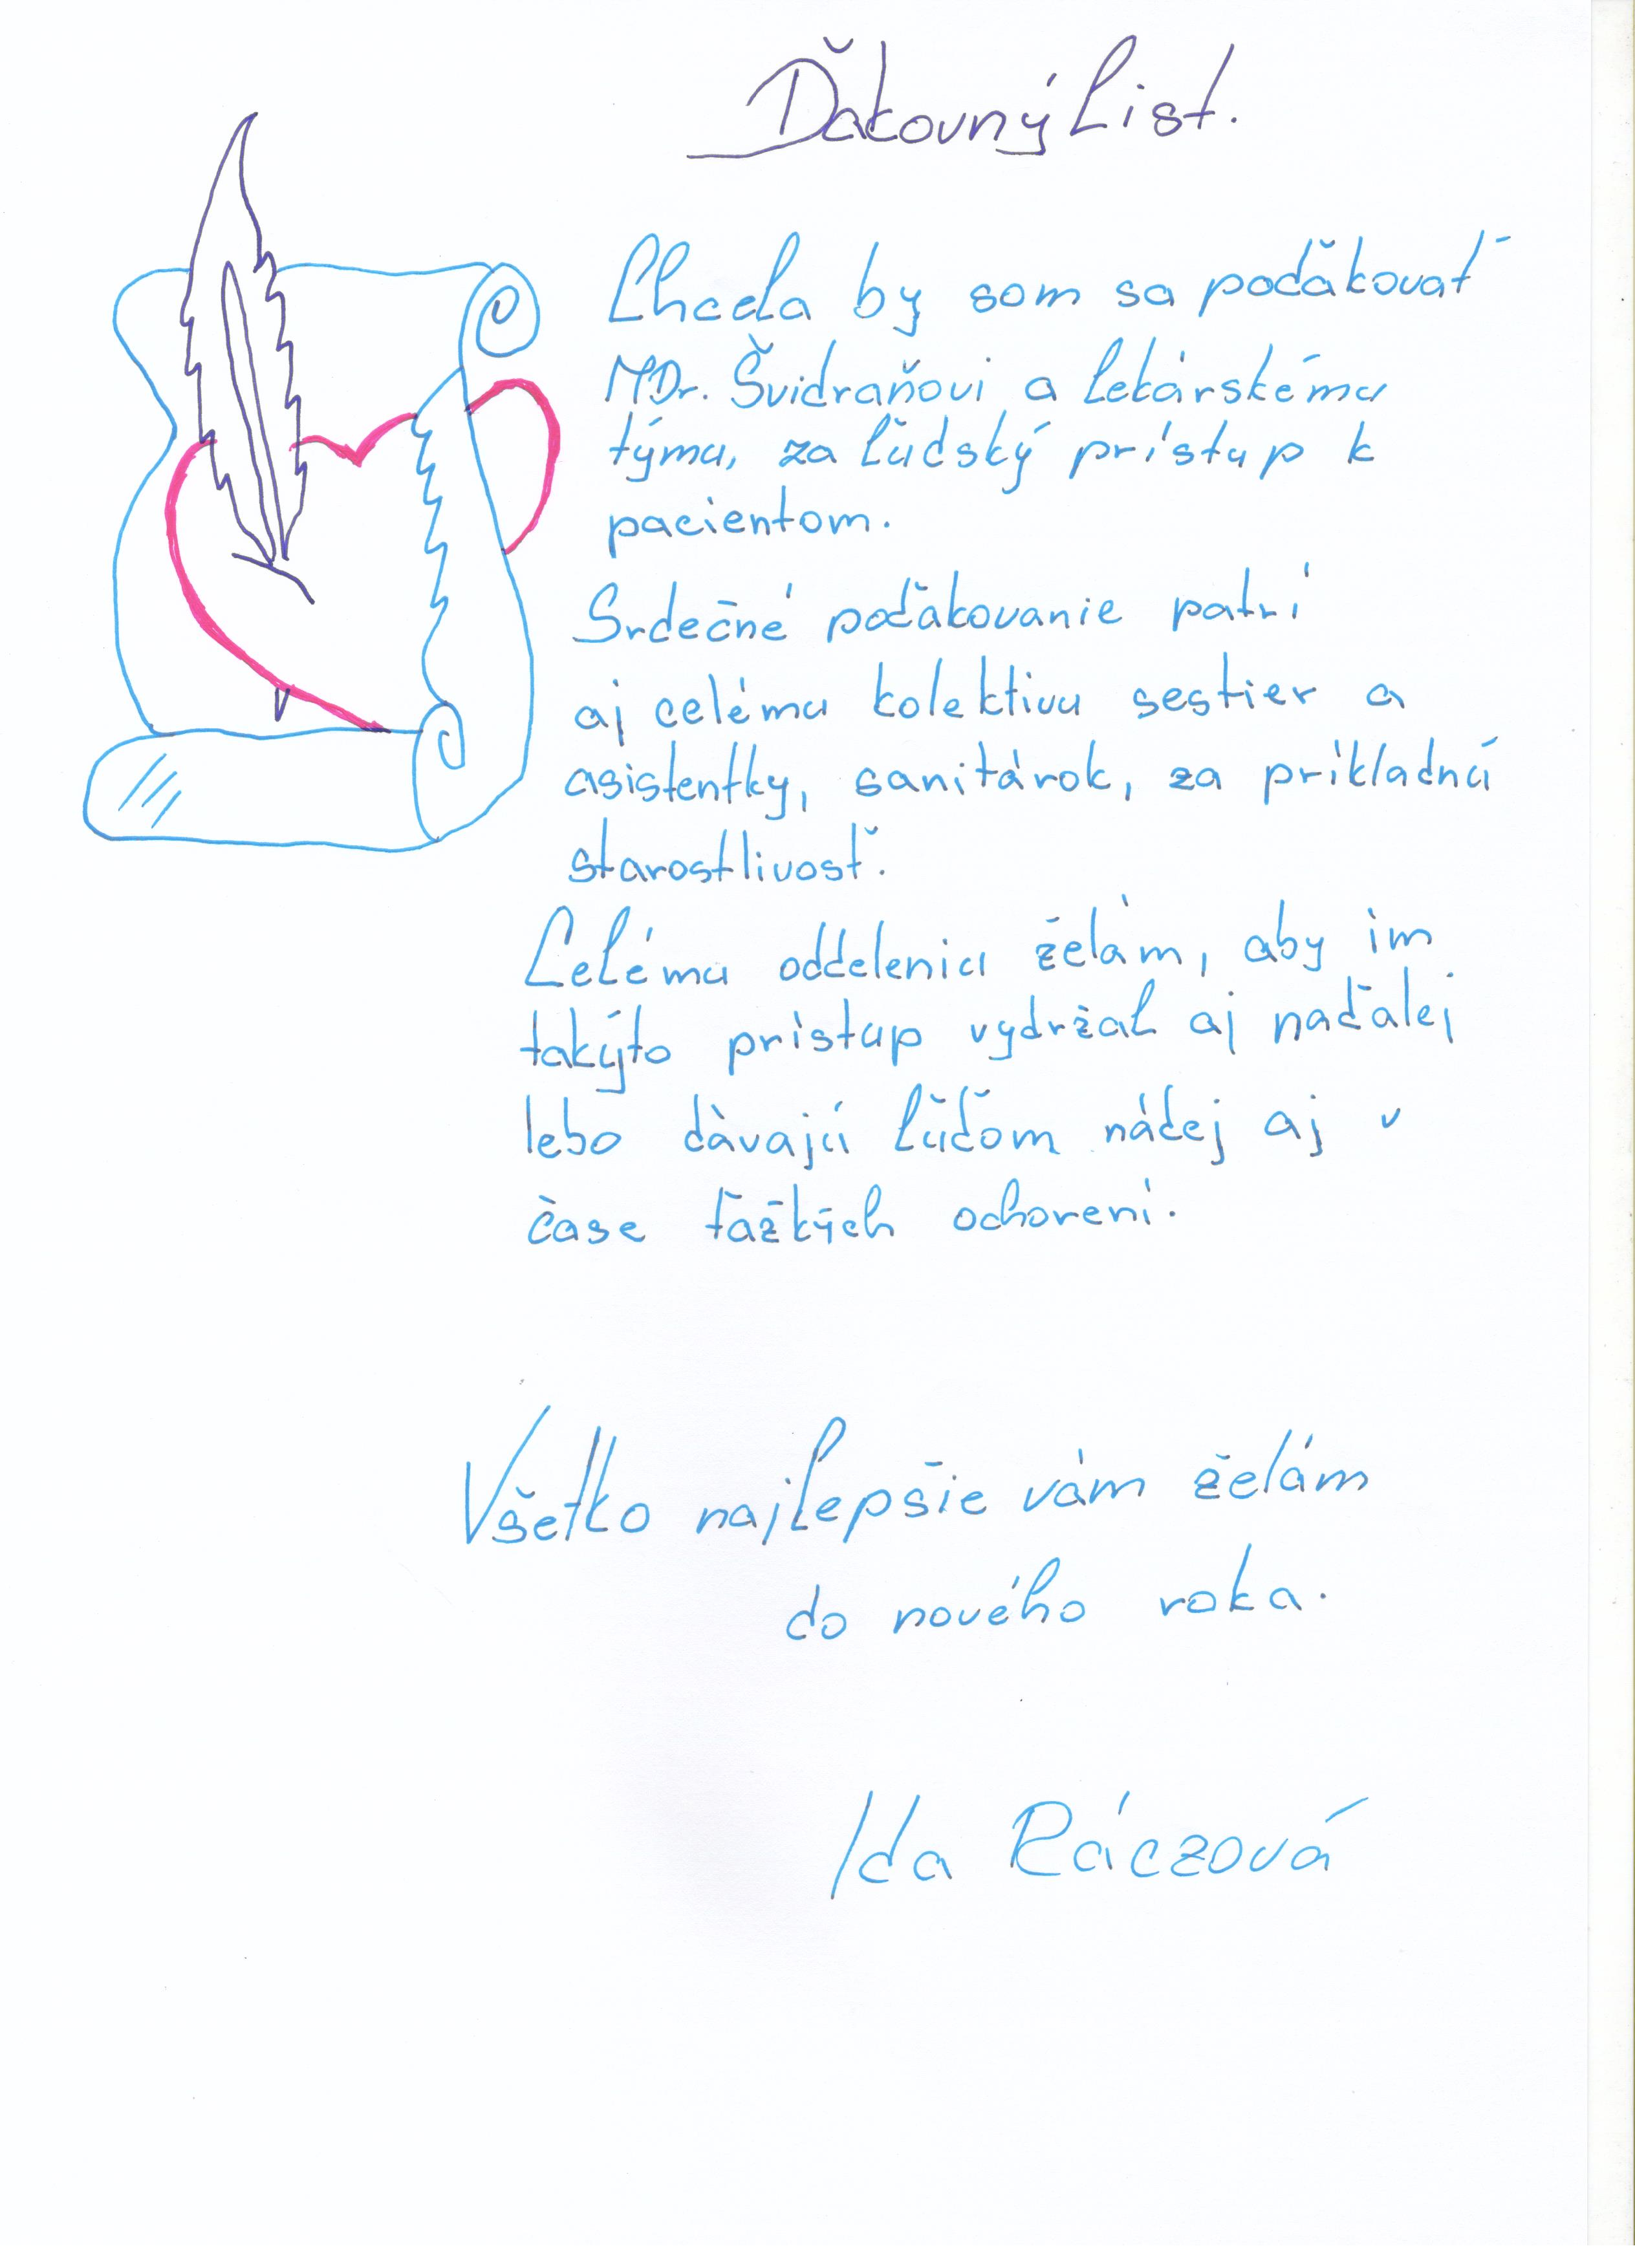 Ďakovný List.
Chcela by som sa poďakovať
MDr. Švidraňovi a lekárskému
týmu, za ľudský prístup k
pacientom.
Srdečné poďakovanie patrí
aj celému kolektivu sestier a
asistentky, sanitárok, za príkladnú
starostlivosť.
Celému oddeleniu želám, aby im
takýto pristup vydržal aj naďalej
lebo dávajú ľuďom nádej aj v
čase ťažkých ochorení.
Všetko najlepšie vám želám
do nového roka.
Ida Ráczová